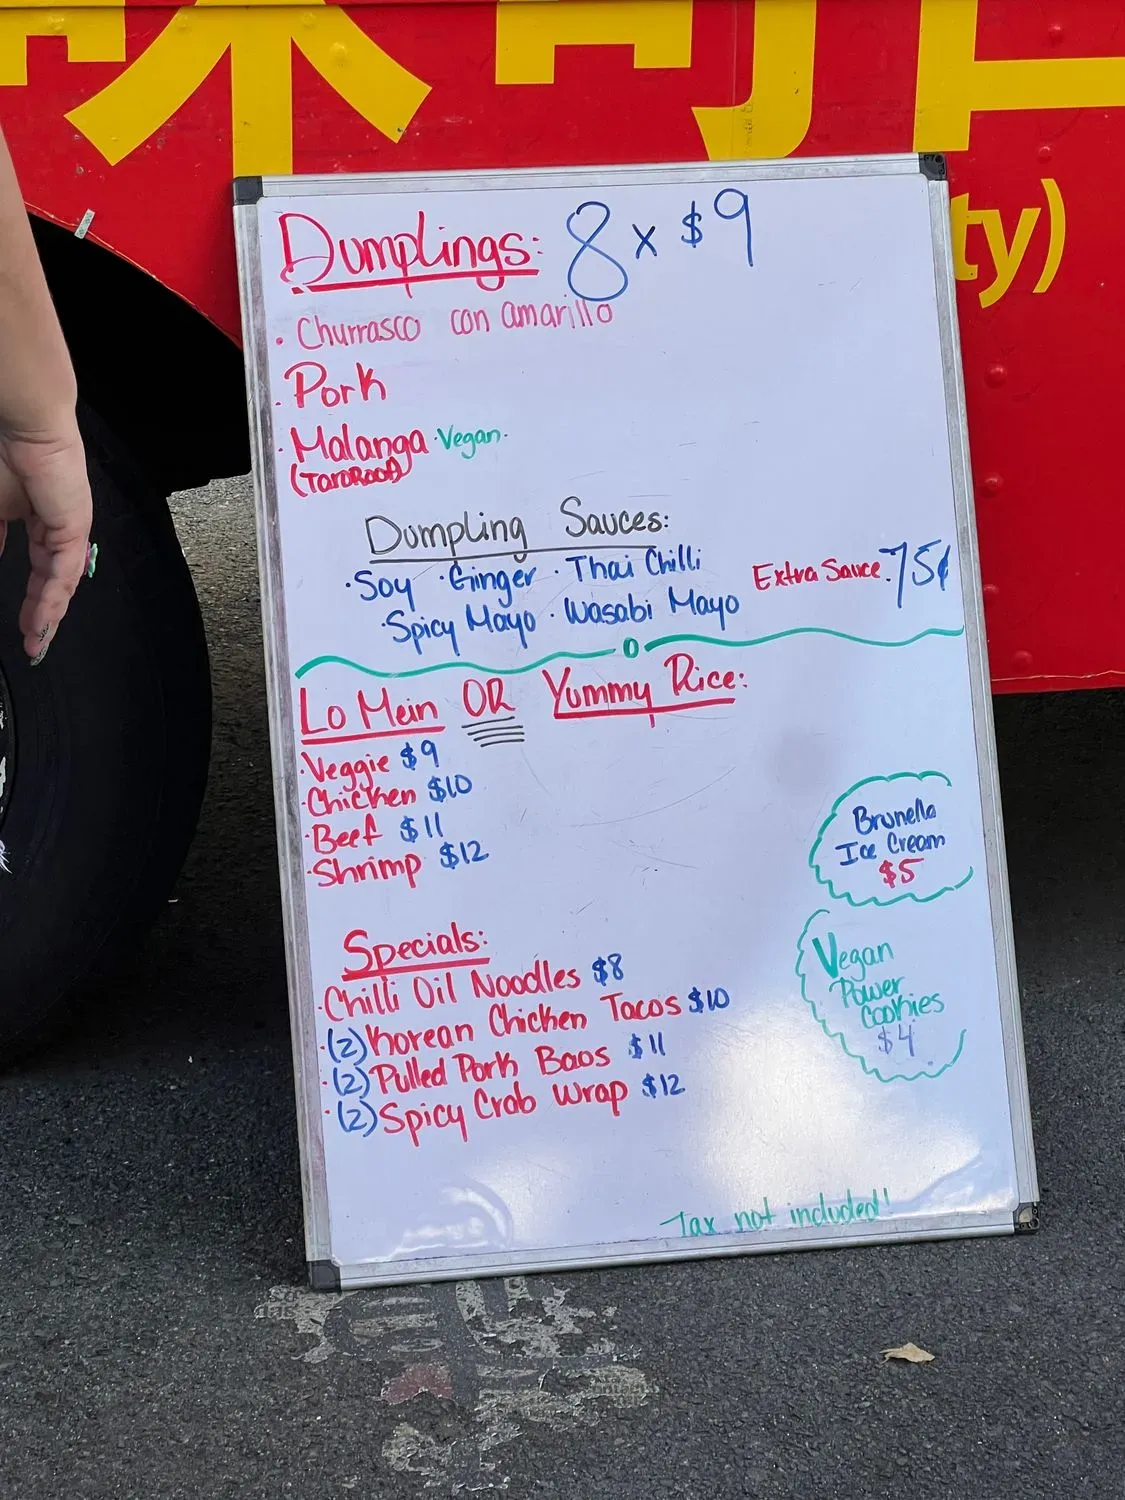 ty)
Dumplings: 8 x $9
· Churrasco con amarillo
· Pork
· Malanga · Vegan ·
(Taro Root)
Dumpling Sauces:
· Soy · Ginger · Thai Chilli
· Spicy Mayo · Wasabi Mayo
Extra Sauce .75¢
Lo Mein OR Yummy Rice:
· Veggie $9
· Chicken $10
· Beef $11
· Shrimp $12
Brunella
Ice Cream
$5
Specials:
· Chilli Oil Noodles $8
· (2) Korean Chicken Tacos $10
· (2) Pulled Pork Baos $11
· (2) Spicy Crab Wrap $12
Vegan
Power
Cookies
$4
Tax not included!